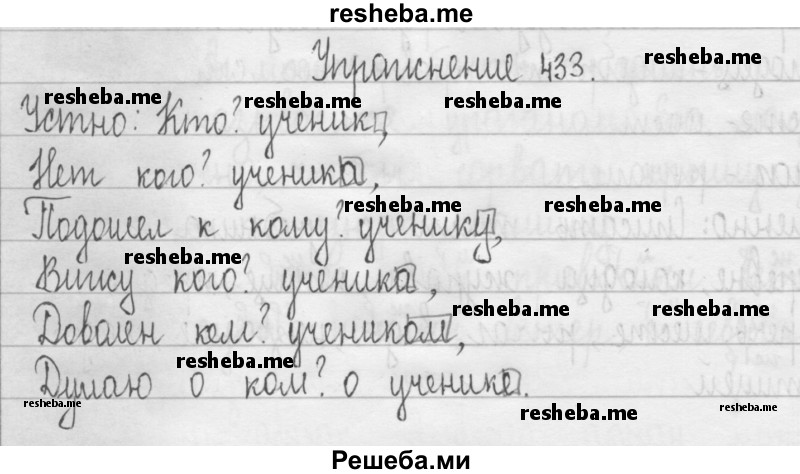 resheba.me
Упражнение 433.
resheba.me
resheba.me resheba.me resheba.me
Устно: Кто? ученик,
Нет кого? ученика,
resheba.me resheba.me
Подошел к кому? ученику,
Вижу кого? ученика,
resheba.me resheba.me
Доволен кем? учеником,
resheba.me
Думаю о ком? о ученике.
resheba.me resheba.me resheba.me
Решеба.ми